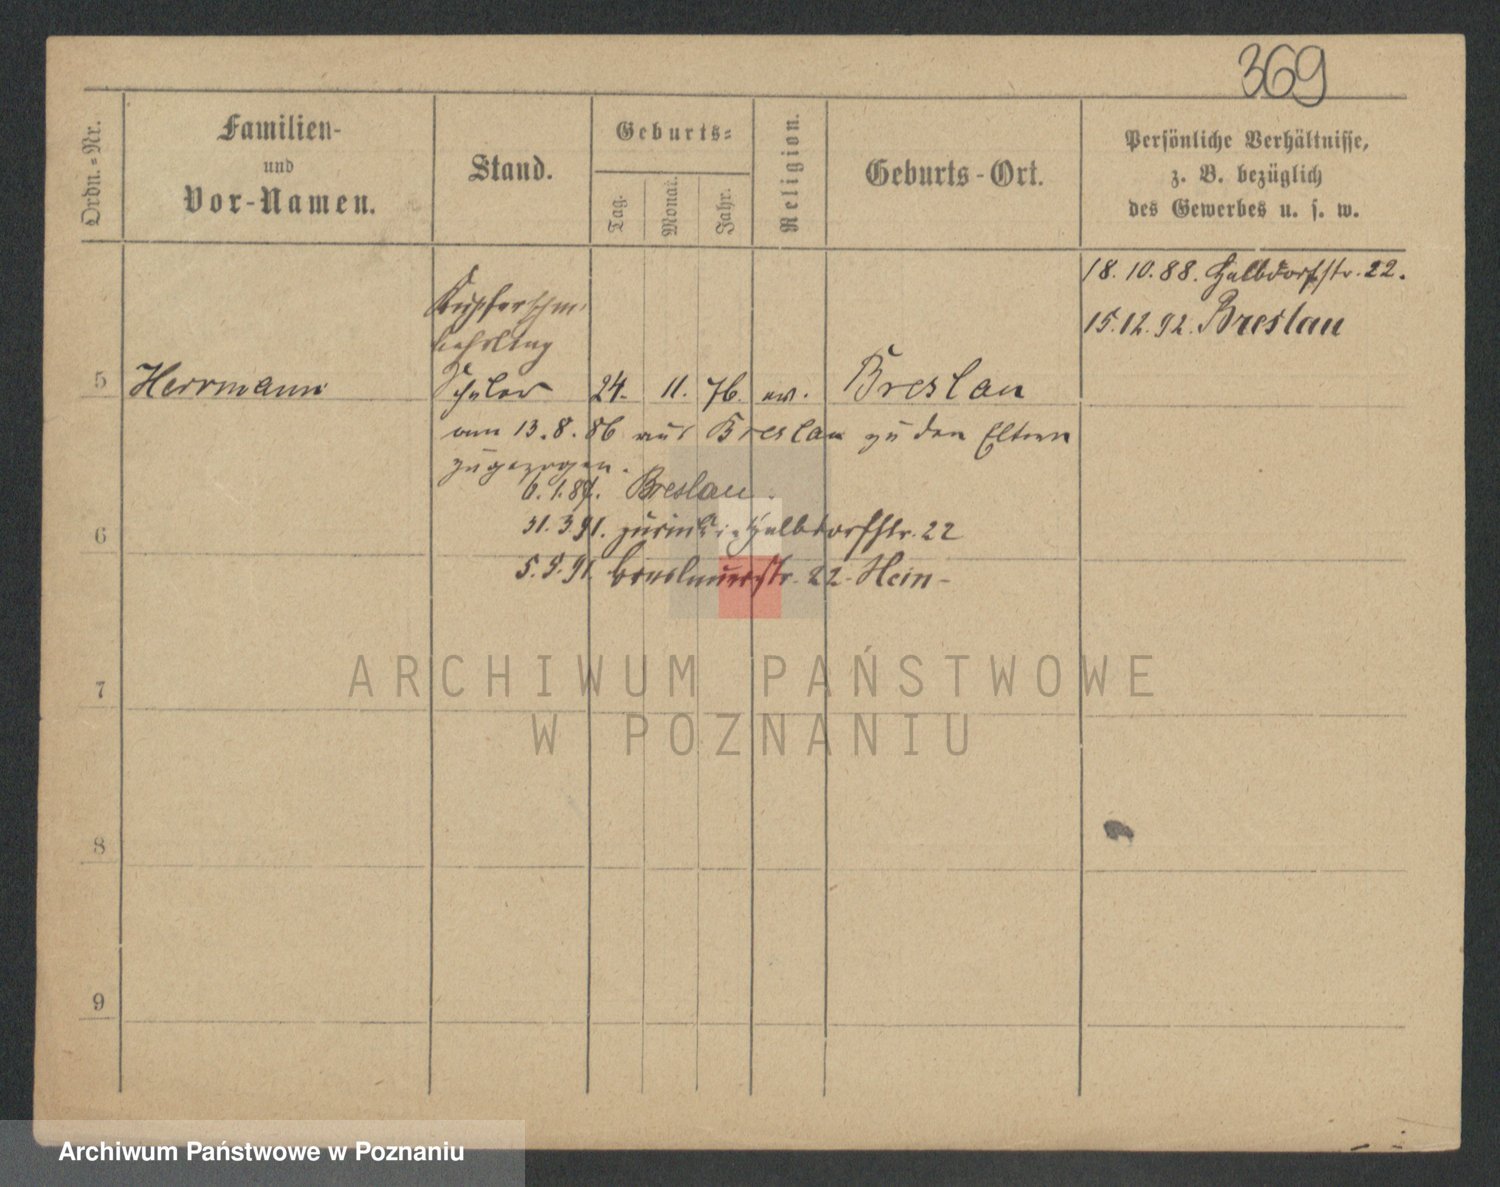 369
Ordn.-Nr.
Familien-
und
Vor-Namen.
Stand.
Geburts-
Tag.
Monat.
Jahr.
Religion.
Geburts-Ort.
Persönliche Verhältnisse,
z. B. bezüglich
des Gewerbes u. s. w.
18. 10. 88. Halbdorfstr. 22.
15. 12. 92. Breslau
Kupferschm.
Lehrling
5 Herrmann Schüler 24. 11. 76. ev. Breslau
am 13. 8. 86 aus Breslau zu den Eltern
zugezogen.
6. 1. 87. Breslau.
6
31. 3. 91. zurück: Halbdorfstr. 22
5. 9. 91. Breslauerstr. 22 Hein-
ARCHIWUM PAŃSTWOWE
7
W POZNANIU
8
9
Archiwum Państwowe w Poznaniu